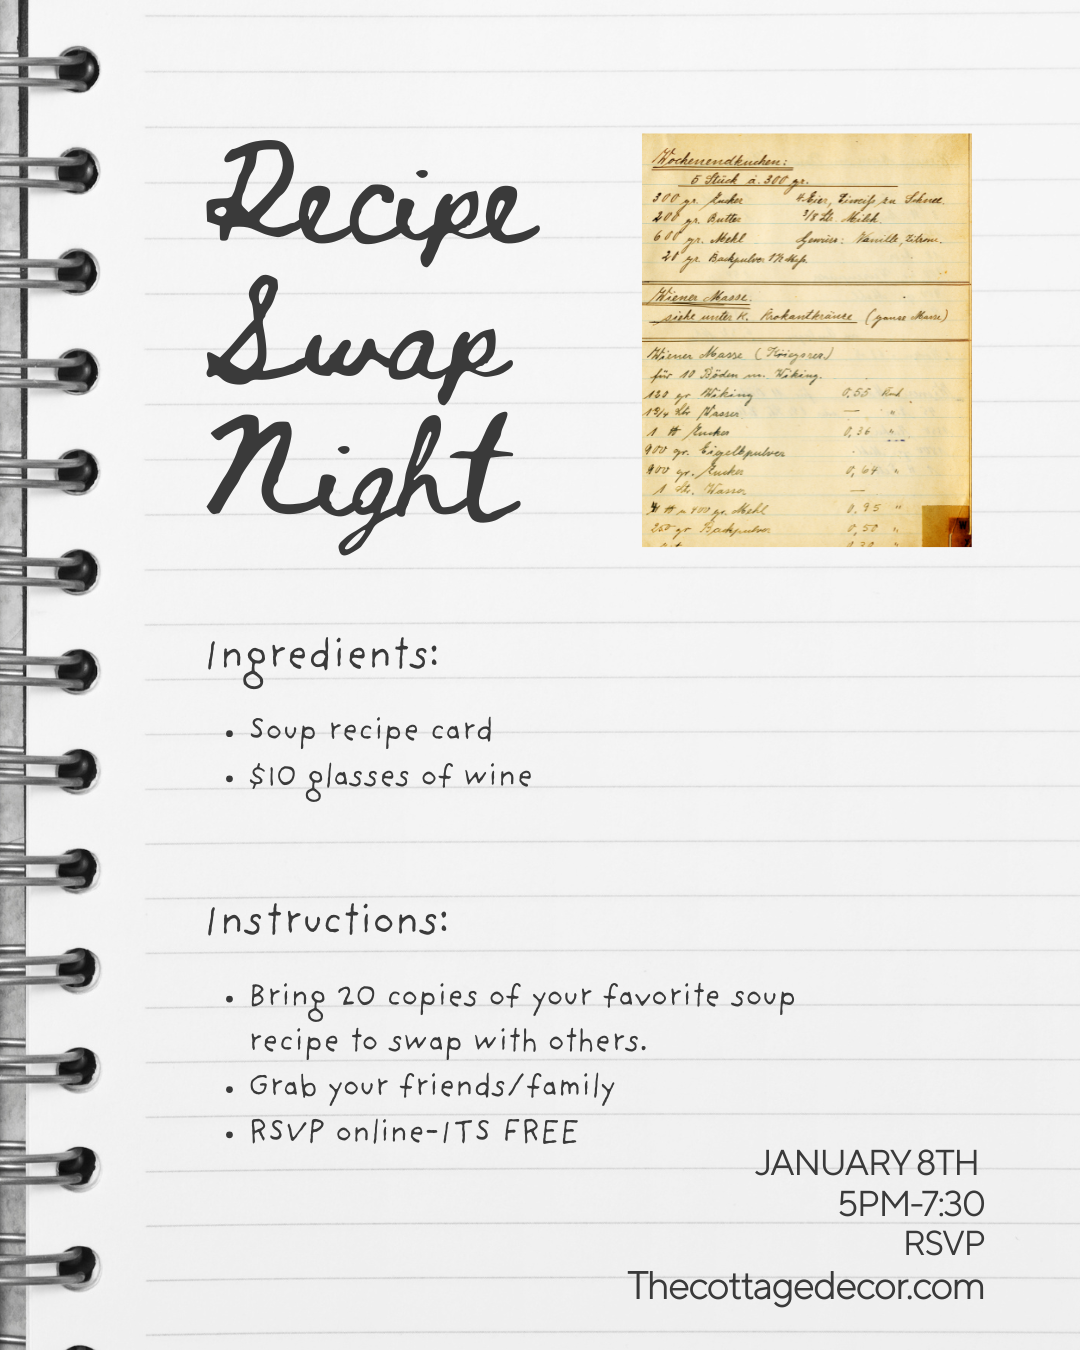 Recipe
Swap
Night
Wochenendkuchen:
5 Stück à 300 gr.
300 gr. Zucker 4 Eier, Eiweiß zu Schnee
200 gr. Butter 3/8 Ltr. Milch.
600 gr. Mehl Gewürz: Vanille, Zitron.
20 gr. Backpulver
Wiener Masse.
siehe unter K. Krokantkränze (ganze Masse)
Wiener Masse
für 10 Böden m. Wiking.
120 gr Wiking 0,55
1 3/4 Ltr Wasser — "
1 ℔ Zucker 0,36 "
900 gr. Eigelbpulver
900 gr. Zucker 0,64 "
1 Ltr. Wasser —
400 gr. Mehl 0,95 "
250 gr Backpulver 0,50 "
Ingredients:
• Soup recipe card
• $10 glasses of wine
Instructions:
• Bring 20 copies of your favorite soup
recipe to swap with others.
• Grab your friends/family
• RSVP online-ITS FREE
JANUARY 8TH
5PM-7:30
RSVP
Thecottagedecor.com